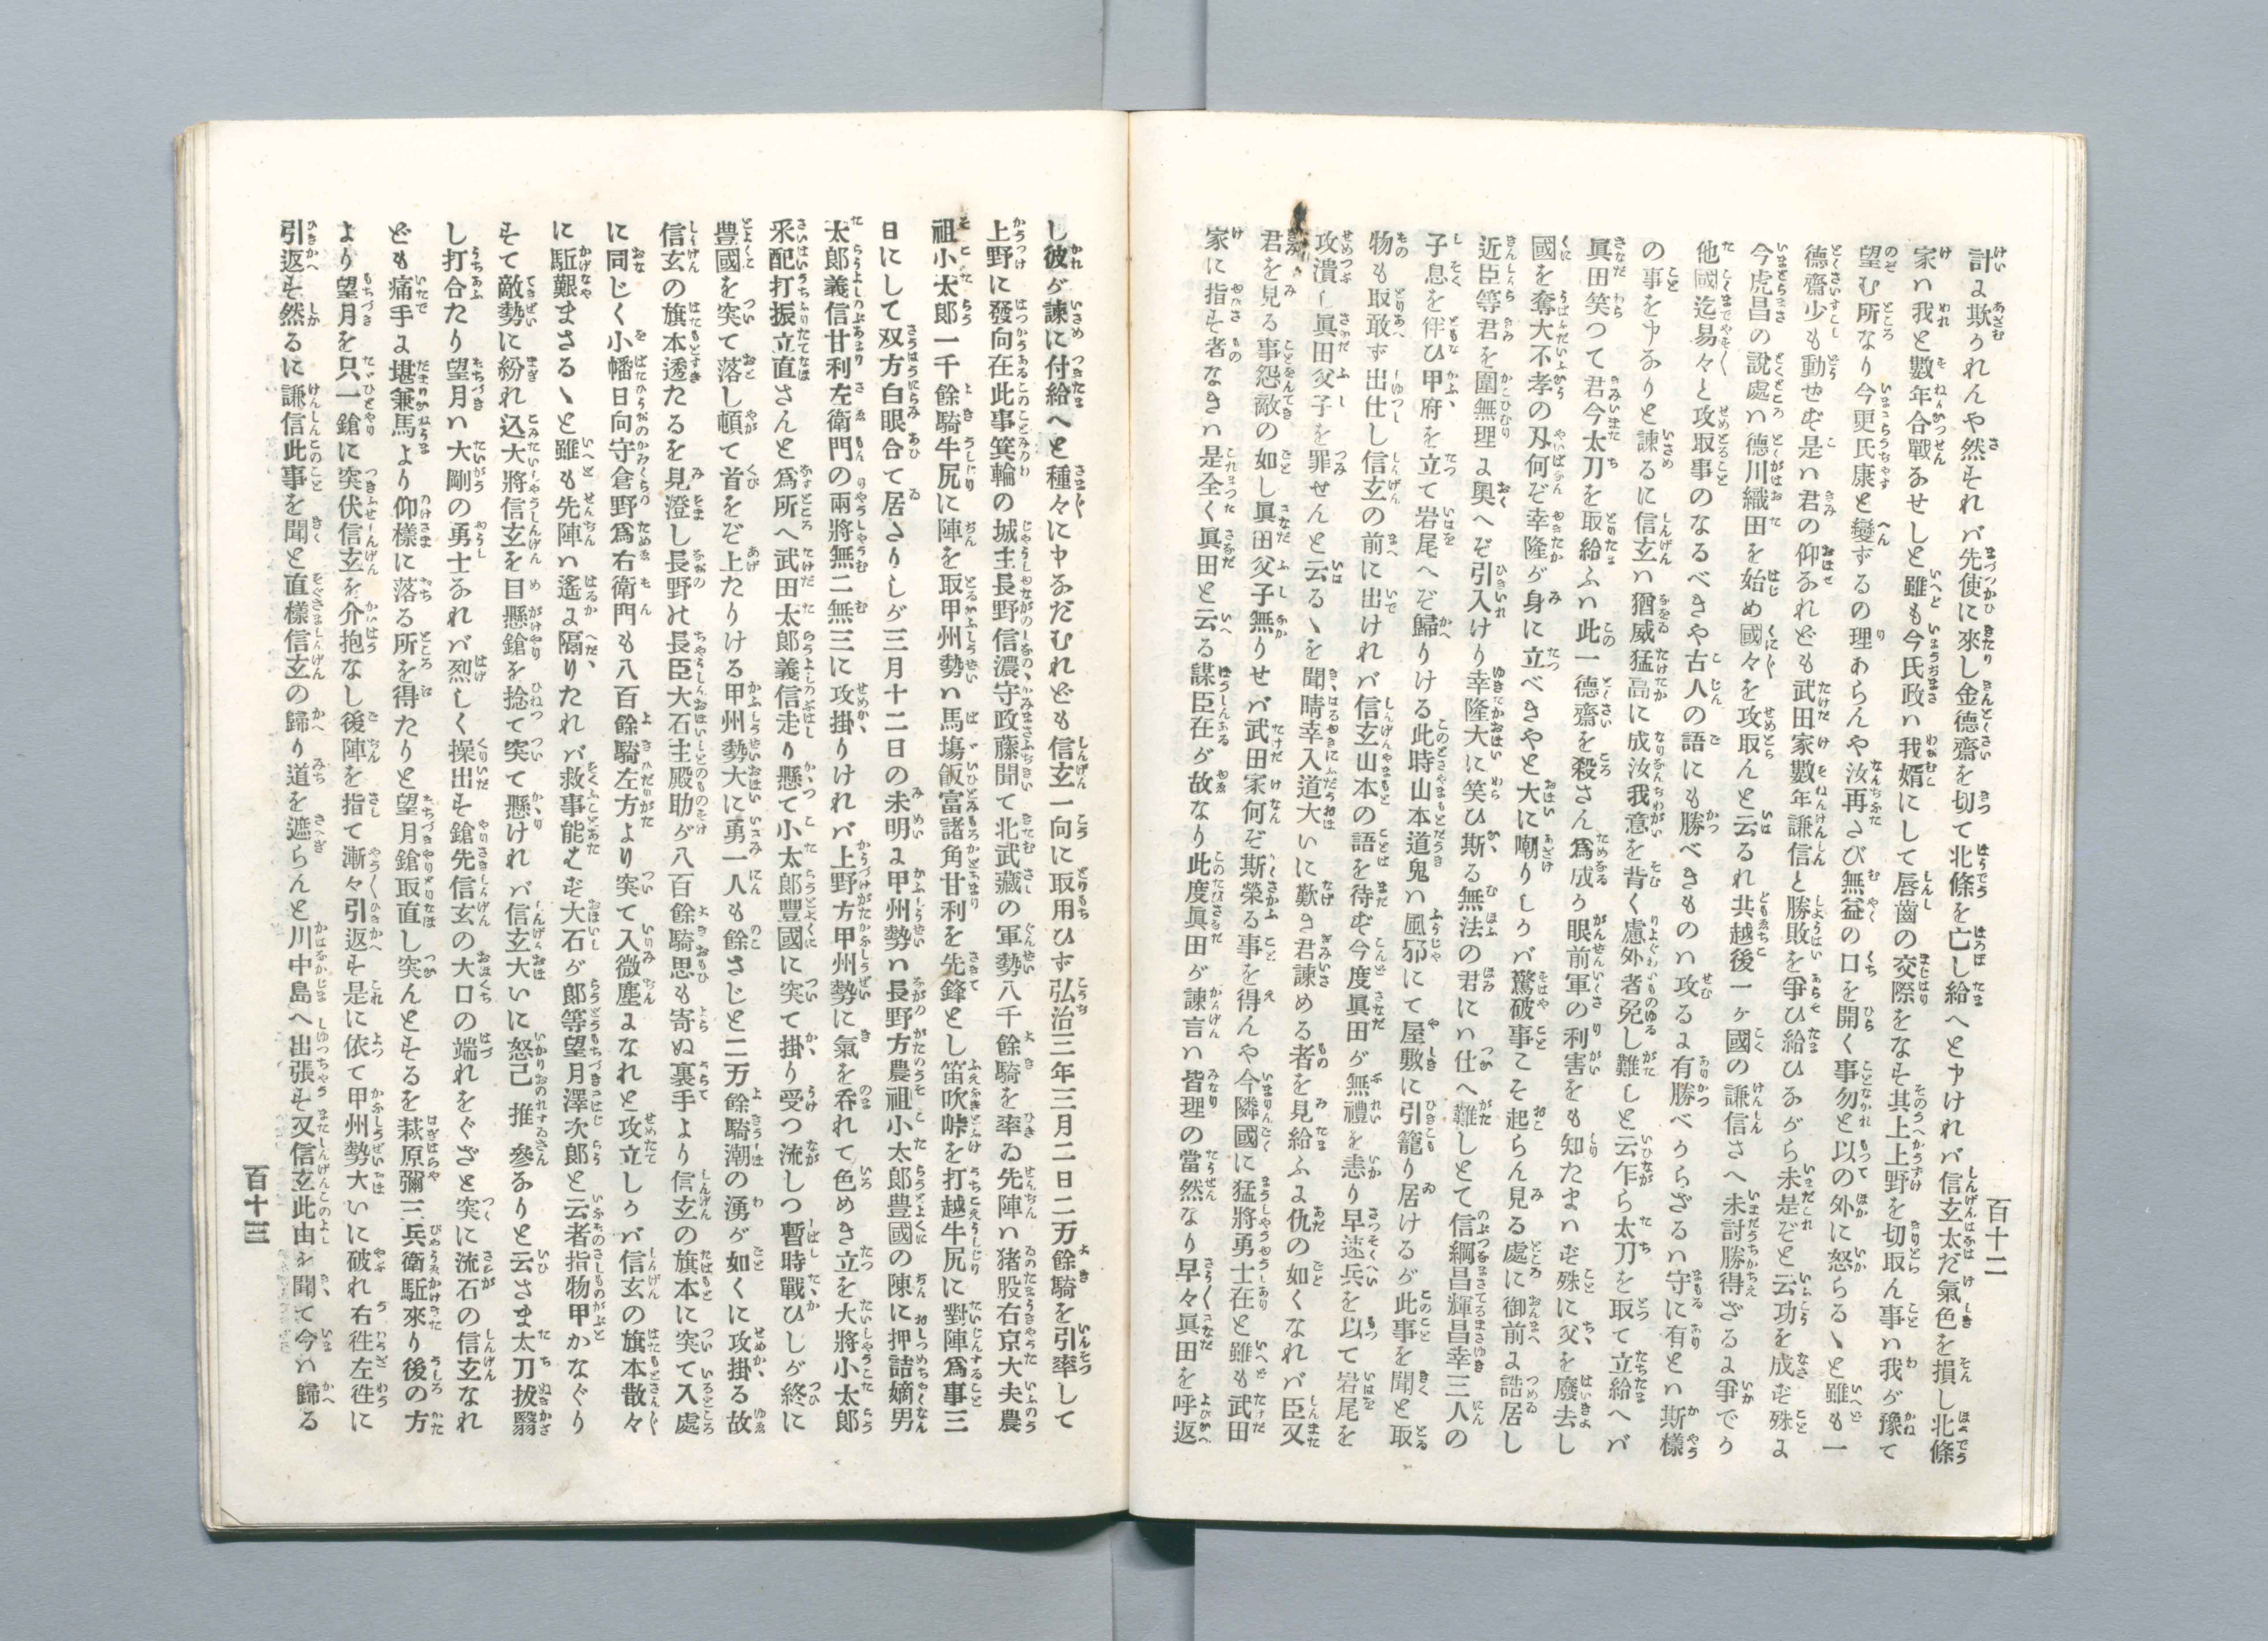 百十二
計に欺かれんや然すれバ先使に來し金德齋を切て北條を亡し給へと申けれバ信玄太だ氣色を損し北條
家ハ我と數年合戰なせしと雖も今氏政ハ我婿にして唇齒の交際をなす其上上野を切取ん事ハ我が豫て
望む所なり今更氏康と變ずるの理あらんや汝再さび無益の口を開く事勿と以の外に怒らるゝと雖も一
德齋少も動せず是ハ君の仰なれども武田家數年謙信と勝敗を爭ひ給ひながら未是ぞと云功を成ず殊に
今虎昌の說處ハ德川織田を始め國々を攻取んと云るれ共越後一ヶ國の謙信さへ未討勝得ざるに爭でか
他國迄易々と攻取事のなるべきや古人の語にも勝べきものハ攻るに有勝べからざるハ守に有とハ斯樣
の事を申なりと諫るに信玄ハ猶威猛高に成汝我意を背く慮外者免し難しと云乍ら太刀を取て立給へバ
眞田笑つて君今太刀を取給ふハ此一德齋を殺さん爲成か眼前軍の利害をも知たまハず殊に父を廢去し
國を奪大不孝の刄何ぞ幸隆が身に立べきやと大に嘲りしかバ驚破事こそ起らん見る處に御前に詰居し
近臣等君を圍無理に奧へぞ引入けり幸隆大に笑ひ斯る無法の君にハ仕へ難しとて信綱昌輝昌幸三人の
子息を伴ひ甲府を立て岩尾へぞ歸りける此時山本道鬼ハ風邪にて屋敷に引籠り居けるが此事を聞と取
物も取敢ず出仕し信玄の前に出けれバ信玄山本の語を待ず今度眞田が無禮を恚り早速兵を以て岩尾を
攻潰し眞田父子を罪せんと云るゝを聞晴幸入道大いに歎き君諫める者を見給ふに仇の如くなれバ臣又
君を見る事怨敵の如し眞田父子無りせバ武田家何ぞ斯榮る事を得んや今隣國に猛將勇士在と雖も武田
家に指す者なきハ是全く眞田と云る謀臣在が故なり此度眞田が諫言ハ皆理の當然なり早々眞田を呼返
し彼が諫に付給へと種々に申なだむれども信玄一向に取用ひず弘治三年三月二日二万餘騎を引率して
上野に發向在此事箕輪の城主長野信濃守政藤聞て北武藏の軍勢八千餘騎を率ゐ先陣ハ猪股右京大夫農
祖小太郎一千餘騎牛尻に陣を取甲州勢ハ馬塲飯富諸角甘利を先鋒とし笛吹峠を打越牛尻に對陣爲事三
日にして双方白眼合て居さりしが三月十二日の未明に甲州勢ハ長野方農祖小太郎豊國の陳に押詰嫡男
太郎義信甘利左衛門の兩將無二無三に攻掛りけれバ上野方甲州勢に氣を呑れて色めき立を大將小太郎
采配打振立直さんと爲所へ武田太郎義信走り懸て小太郎豐國に突て掛り受つ流しつ暫時戰ひしが終に
豊國を突て落し頓て首をぞ上たりける甲州勢大に勇一人も餘さじと二万餘騎潮の湧が如くに攻掛る故
信玄の旗本透たるを見澄し長野の長臣大石主殿助が八百餘騎思も寄ぬ裏手より信玄の旗本に突て入處
に同じく小幡日向守倉野爲右衛門も八百餘騎左方より突て入微塵になれと攻立しかバ信玄の旗本散々
に駈艱まさるゝと雖も先陣ハ遙に隔りたれバ救事能はず大石が郞等望月澤次郎と云者指物甲かなぐり
すて敵勢に紛れ込大將信玄を目懸鎗を捻て突て懸けれバ信玄大いに怒己推參なりと云さま太刀拔翳
し打合たり望月ハ大剛の勇士なれバ烈しく操出す鎗先信玄の大口の端れをぐざと突に流石の信玄なれ
ども痛手に堪兼馬より仰樣に落る所を得たりと望月鎗取直し突んとするを萩原彌三兵衛駈來り後の方
より望月を只一鎗に突伏信玄を介抱なし後陣を指て漸々引返す是に依て甲州勢大いに破れ右徃左徃に
引返す然るに謙信此事を聞と直樣信玄の歸り道を遮らんと川中島へ出張す又信玄此由を聞て今ハ歸る
百十三